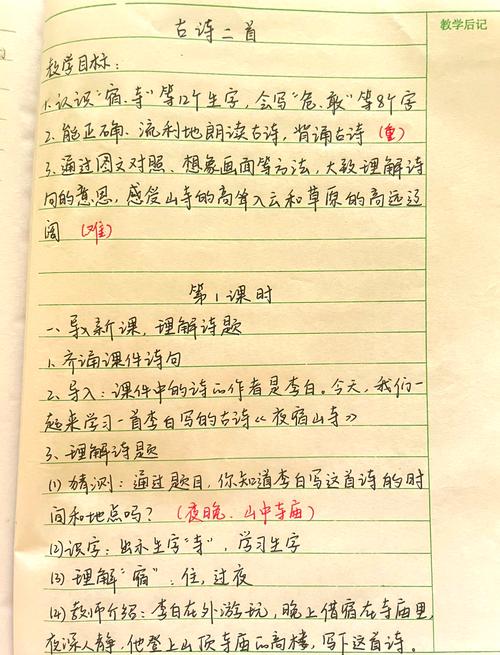 教学后记
古诗二首
教学目标：
1.认识“宿、寺”等12个生字，会写“危、敢”等8个字
2、能正确、流利地朗读古诗，背诵古诗（重）
3、通过图文对照、想象画面等方法，大致理解诗
句的意思，感受山寺的高耸入云和草原的高远辽
阔（难）
第1课时
一、导入新课，理解诗题
1、齐诵课件诗句
2、导入：课件中的诗的作者是李白。今天，我们一
起来学习一首李白写的古诗《夜宿山寺》
3、理解诗题
(1)猜测：通过题目，你知道李白写这首诗的时
间和地点吗？（夜晚、山中寺庙）
(2)识字：出示生字“寺”，学习生字
(3)理解“宿”：住，过夜
(4)教师介绍：李白在外游玩，晚上借宿在寺庙里，
夜深人静，他登上山顶寺庙的高楼，写下这首诗。